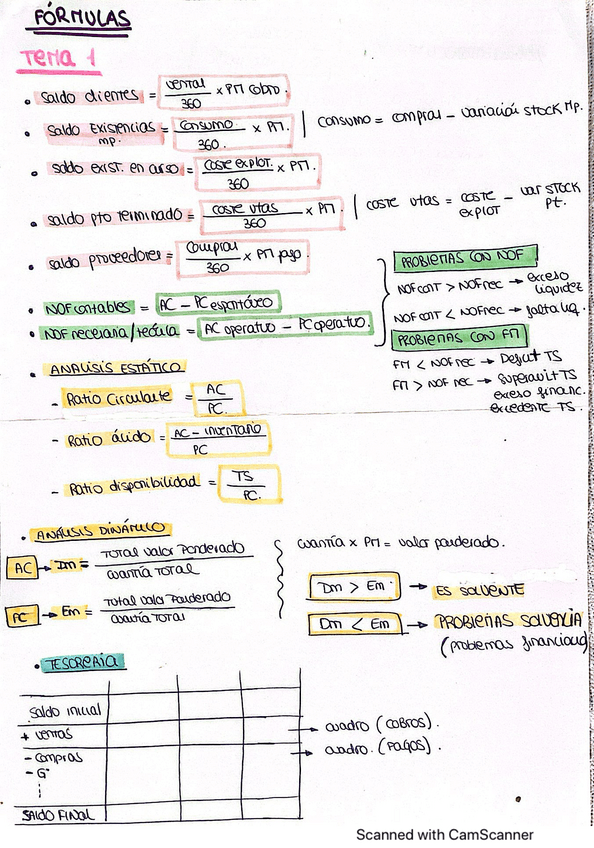 FÓRMULAS
Tema 1
• Saldo clientes = ventas / 360 x PM cobro.
• Saldo Existencias mp. = Consumo / 360. x PM. | consumo = compras - variación stock Mp.
• Saldo exist. en curso = coste explot. / 360 x PM
• Saldo pto terminado = coste vtas / 360 x PM. | coste vtas = coste explot - var stock Pt.
• Saldo proveedores = Compras / 360 x PM pago.
• NOF contables = AC - PC espontáneo
• NOF necesaria/teórica = AC operativo - PC operativo.
PROBLEMAS CON NOF
NOF cont > NOF nec → exceso liquidez
NOF cont < NOF nec → falta liq.
PROBLEMAS CON FM
FM < NOF nec → Deficit TS
FM > NOF nec → Superavit TS
exceso financ.
excedente TS.
• ANALISIS ESTÁTICO
- Ratio Circulante = AC / PC.
- Ratio ácido = AC - inventario / PC
- Ratio disponibilidad = TS / PC.
• ANÁLISIS DINÁMICO
AC → Dm = Total valor Ponderado / cuantía TOTAL
PC → Em = Total valor Ponderado / cuantía TOTAL
cuantía x PM = valor ponderado.
Dm > Em → ES SOLVENTE
Dm < Em → PROBLEMAS SOLVENCIA
(problemas financieros)
• TESORERIA
Saldo inicial
+ ventas → cuadro (COBROS).
- compras → cuadro. (PAGOS).
- G⁰
⋮
SALDO FINAL
Scanned with CamScanner